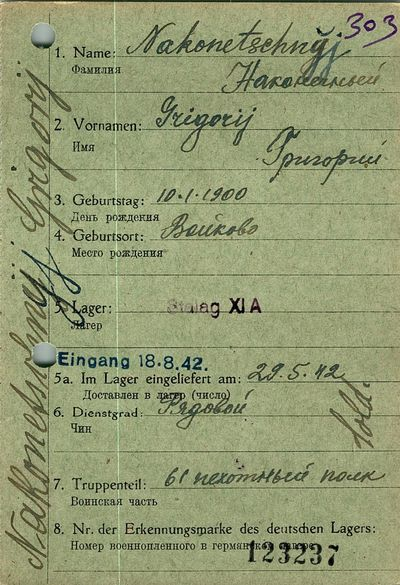 303
1. Name: Nakonetschnyj
Фамилия
Наконечный
2. Vornamen: Grigorij
Имя
Григорий
3. Geburtstag: 10.1.1900
День рождекия
4. Geburtsort: Войково
Место рождения
5. Lager: Stalag XI A
Лагер
Eingang 18.8.42.
5a. Im Lager eingeliefert am: 29.5.42
Доставлен в лагер (число)
6. Dienstgrad: Рядовой
Чин
Sold.
7. Truppenteil: 61 пехотный полк
Воинская часть
8. Nr. der Erkennungsmarke des deutschen Lagers:
Номер военнопленного в германском лагере
123237
Nakonetschnyj Grigorj